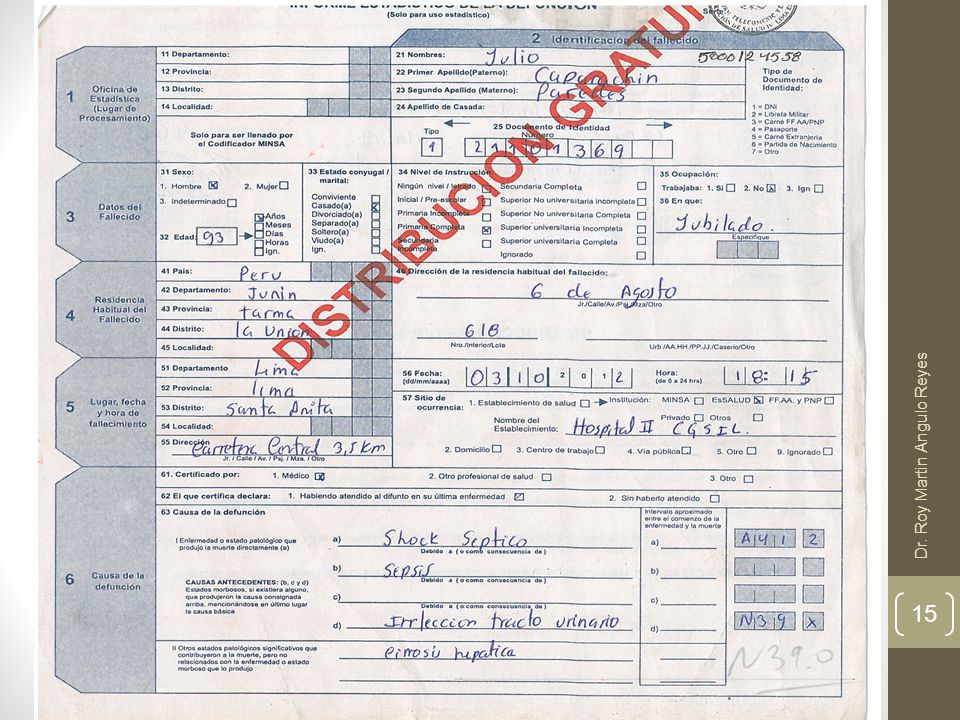 INFORME ESTADISTICO DE LA DEFUNCION
(Solo para uso estadístico)
Serie:
2 Identificación del fallecido
1
Oficina de Estadística (Lugar de Procesamiento)
11 Departamento:
12 Provincia:
13 Distrito:
14 Localidad:
Solo para ser llenado por el Codificador MINSA
21 Nombres: Julio
5000124558
22 Primer Apellido(Paterno): Caparachin
23 Segundo Apellido (Materno): Paredes
24 Apellido de Casada:
25 Documento de Identidad
Tipo
Número
1
21101369
Tipo de Documento de Identidad:
1 = DNI
2 = Libreta Militar
3 = Carné FF.AA/PNP
4 = Pasaporte
5 = Carné Extranjería
6 = Partida de Nacimiento
7 = Otro
DISTRIBUCION GRATUI
3
Datos del Fallecido
31 Sexo:
1. Hombre X 2. Mujer
3. Indeterminado
32 Edad: 93
Años
Meses
Días
Horas
Ign.
33 Estado conyugal / marital:
Conviviente
Casado(a)
Divorciado(a)
Separado(a)
Soltero(a)
Viudo(a)
Ign.
34 Nivel de Instrucción:
Ningún nivel / letrado
Inicial / Pre-escolar
Primaria Incompleta
Primaria Completa
Secundaria Incompleta
Secundaria Completa
Superior No universitaria incompleta
Superior No universitaria Completa
Superior universitaria Incompleta
Superior universitaria Completa
Ignorado
35 Ocupación:
Trabajaba: 1. Si 2. No X 3. Ign
36 En que:
Jubilado.
Especifique
4
Residencia Habitual del Fallecido
41 Pais: Peru
42 Departamento: Junin
43 Provincia: tarma
44 Distrito: la Union
45 Localidad:
46 Dirección de la residencia habitual del fallecido:
6 de Agosto
Jr./Calle/Av./Psj./Mza/Otro
618
Nro./Interior/Lote
Urb /AA.HH /PP.JJ./Caserio/Otro
5
Lugar, fecha y hora de fallecimiento
51 Departamento Lima
52 Provincia: lima
53 Distrito: Santa Anita
54 Localidad:
55 Dirección Carretera Central 3,5 Km
Jr. / Calle / Av. / Psj. / Mza. / Otro
56 Fecha: (dd/mm/aaaa) 03 10 2012
Hora: (de 0 a 24 hrs) 18:15
57 Sitio de ocurrencia:
1. Establecimiento de salud
Institución: MINSA EsSALUD X FF.AA. y PNP
Privado Otros
Nombre del Establecimiento: Hospital II CGSIL.
2. Domicilio 3. Centro de trabajo 4. Vía pública 5. Otro 9. Ignorado
6
Causa de la defunción
61. Certificado por: 1. Médico X 2. Otro profesional de salud 3. Otro
62 El que certifica declara: 1. Habiendo atendido al difunto en su última enfermedad 2. Sin haberlo atendido
63 Causa de la defunción
Intervalo aproximado entre el comienzo de la enfermedad y la muerte
I Enfermedad o estado patológico que produjo la muerte directamente (a)
a) Shock Septico
Debido a ( o como consecuencia de )
a)
A412
b) Sepsis
Debido a ( o como consecuencia de )
b)
CAUSAS ANTECEDENTES: (b, c y d)
Estados morbosos, si existiera alguno, que produjeron la causa consignada arriba, mencionándose en último lugar la causa básica
c)
Debido a ( o como consecuencia de )
c)
d) Infeccion tracto urinario
d)
N39X
II Otros estados patológicos significativos que contribuyeron a la muerte, pero no relacionados con la enfermedad o estado morboso que lo produjo
cirrosis hepatica
N39.0
Dr. Roy Martin Angulo Reyes
15